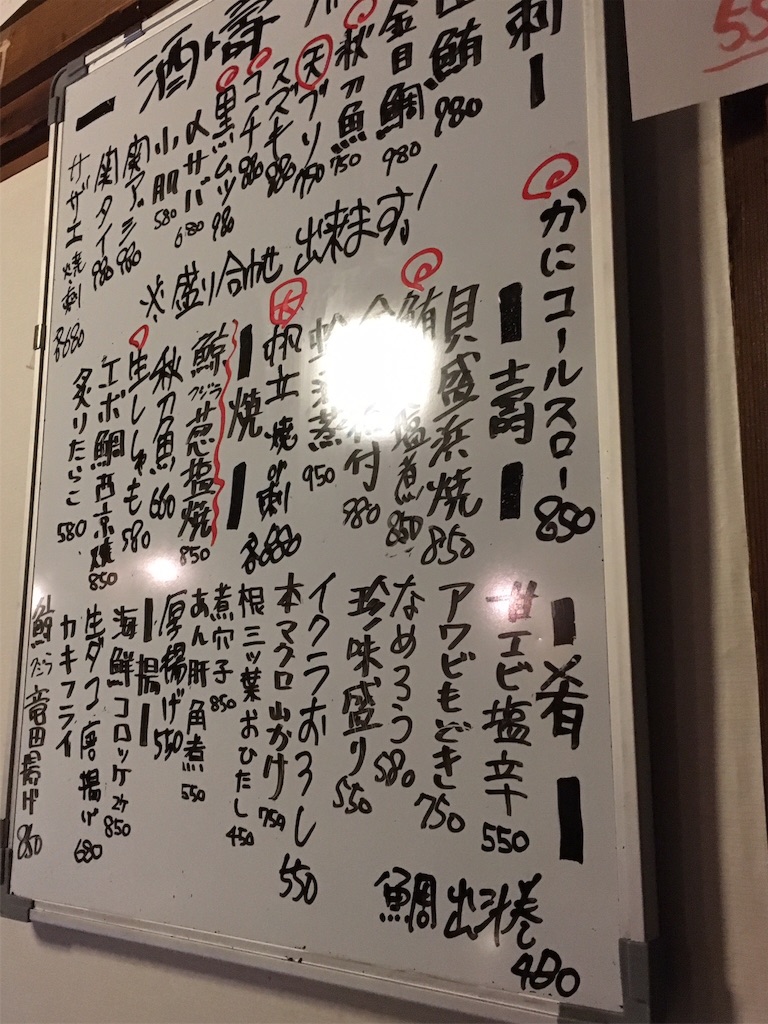 刺
鮪 980
金目鯛 980
秋刀魚 750
天 ブリ
スズキ 880
コチ 880
黒ムツ 980
〆サバ 680
小肌 580
関アジ 980
関タイ 980
サザエ 焼・刺 各680
酒・壽
※盛り合わせ 出来ます!
かにコールスロー 850
壽
貝盛浜焼 850
塩煮 850
付 980
蒸 950
帆立 焼or刺 各680
焼
鯨 クジラ 葱塩焼 850
秋刀魚 660
生ししゃも 580
エボ鯛西京焼 850
炙りたらこ 580
肴
甘エビ塩辛 550
アワビもどき 750
なめろう 580
珍味盛り 550
イクラおろし 550
本マグロ山かけ 750
根三ツ葉おひたし 450
煮穴子 850
あん肝角煮 550
厚揚げ 550
揚
海鮮コロッケ2ケ 850
生ダコ唐揚げ 680
カキフライ
クジラ 竜田揚げ 860
鯛出汁巻 480
55